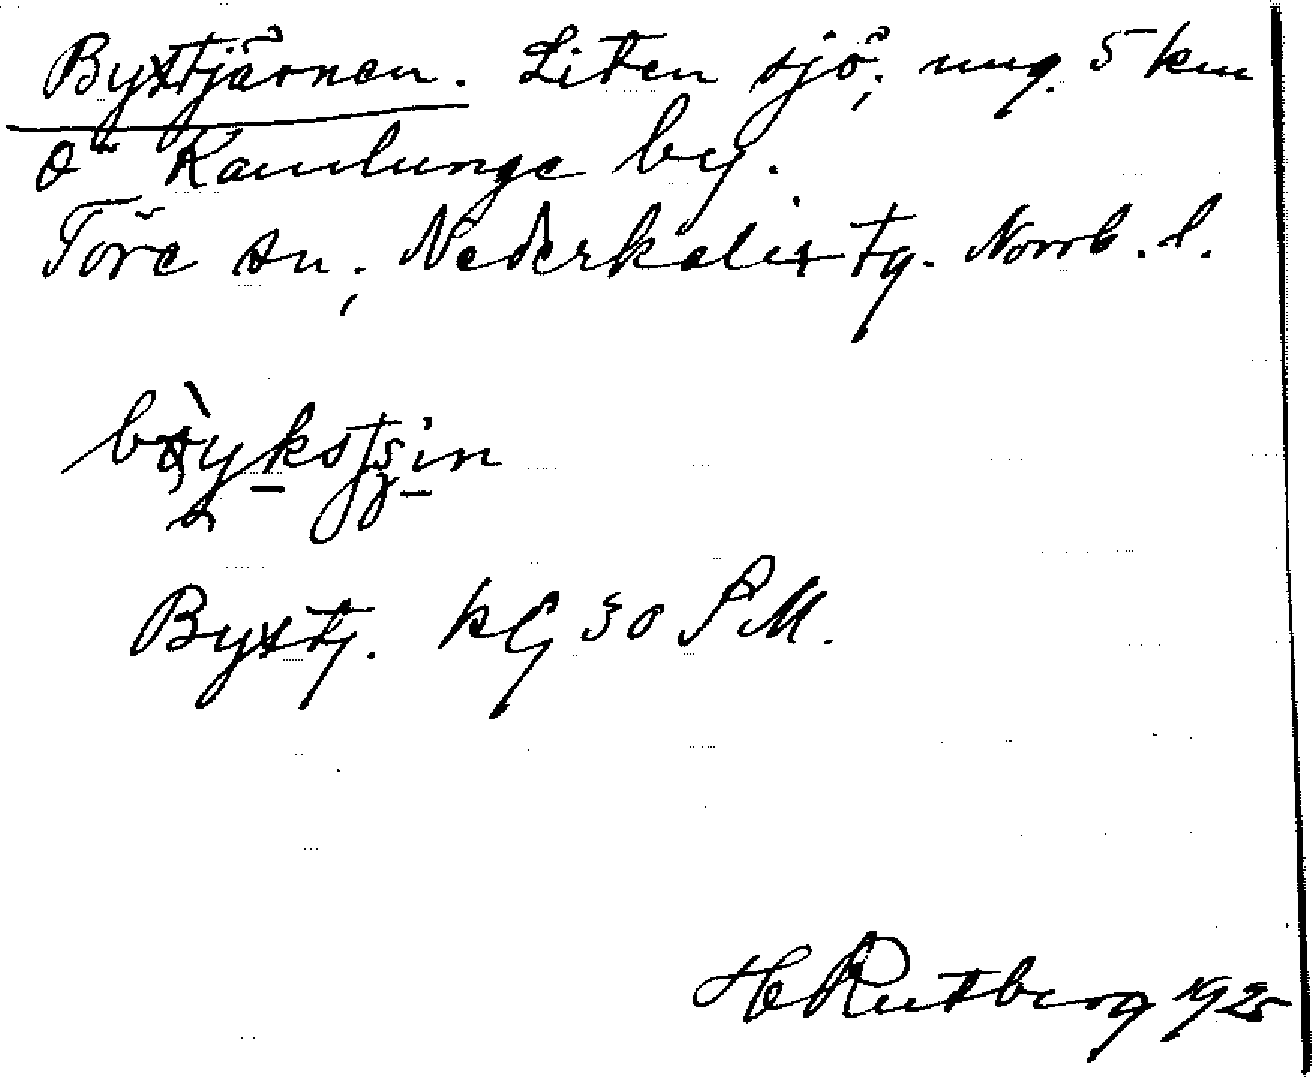 Byxtjärnen. Liten sjö, ung. 5 km
O Kamlunge by.
Töre sn, Nederkalix tg. Norrb. l.
Byxtj. kG 50 SM.
H Rutberg 1925